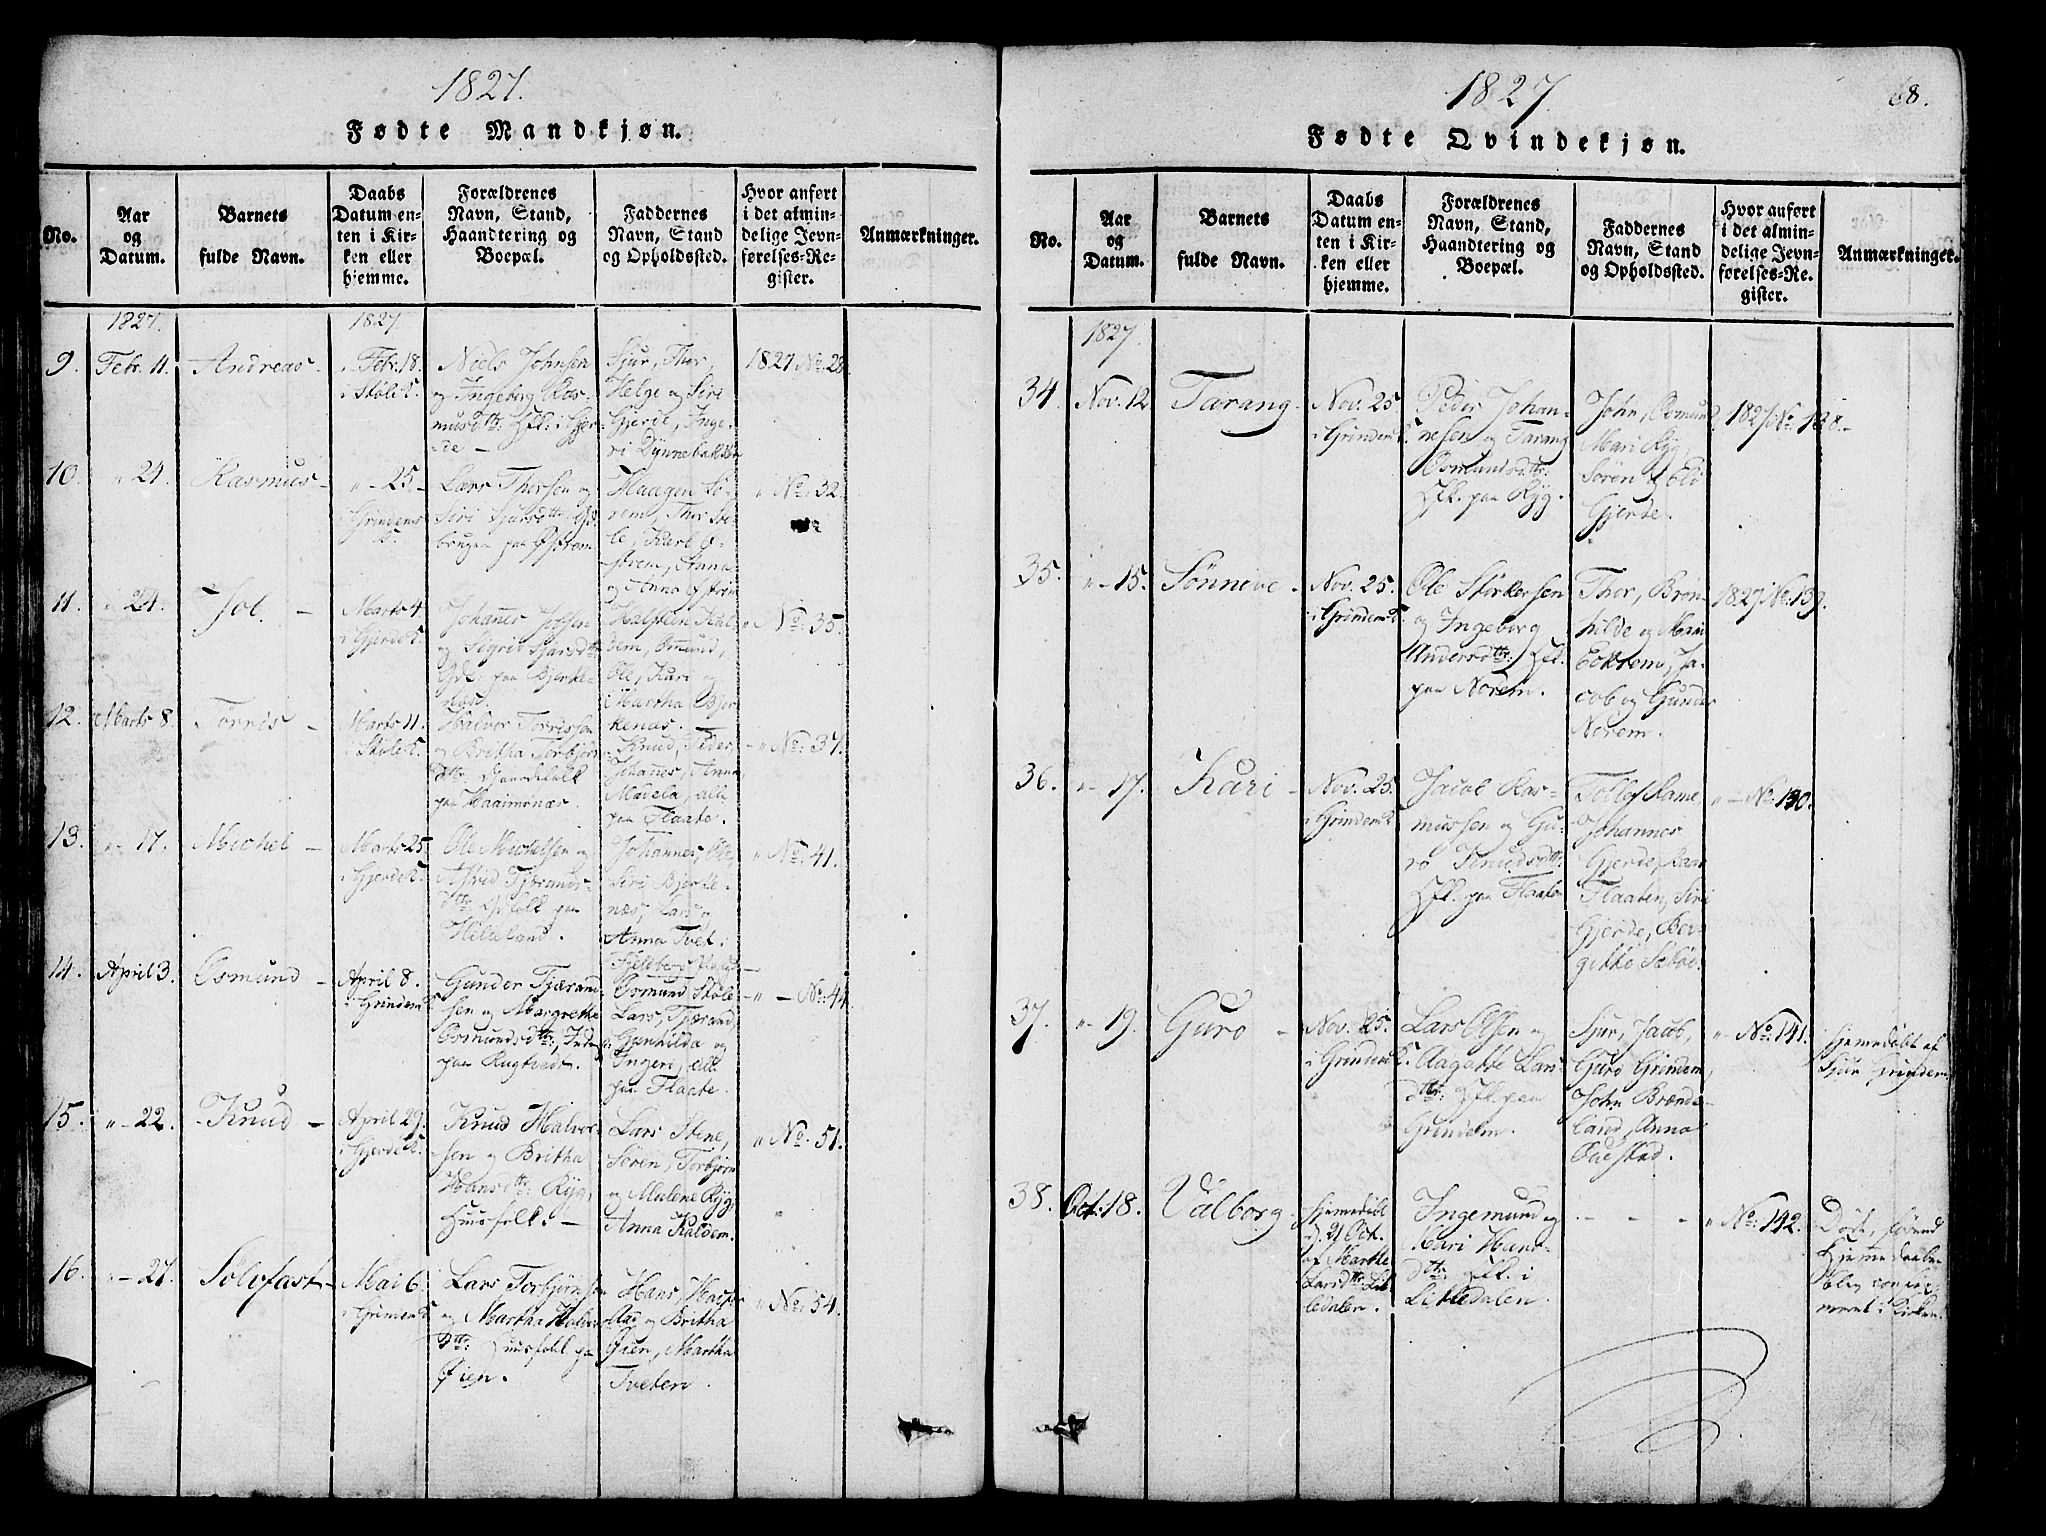 1827.
Fødte Mandkjøn.
No.
Aar
og
Datum.
Barnets
fulde Navn.
Daabs
Datum en-
ten i Kir-
ken eller
hjemme.
Forældrenes
Navn, Stand,
Haandtering og
Boepæl.
Faddernes
Navn, Stand
og Opholdssted.
Hvor anført
i det almin-
delige Jevn-
førelses-Re-
gister.
Anmærkninger.
1827.
1827
9.
Febr. 11.
Andreas
Febr. 18.
i Skøle K.
Niels Johnsen
og Ingeborg Ras-
musdtr: Hfl: i Gjer-
de
Sjur, Thor,
Helge og Siri
Gjerde, Inge-
ri Dynnebakken
1827 No 28.
10.
" 24.
Rasmus
" 25
i Grindens
K.
Lars Thorsen og
Siri Sjursdtr: Gd-
brugere paa Østrem
Haagen Sø-
rem, Thor Sto-
le, Kari Ø-
strem, Anna
og Anna Østrem
" No: 32.
11.
" 24.
Jol.
Marts 4
i Gjerde K.
Johannes
og Sigrid Sjursdtr
paa Bjerke-
næs
Halsten Kal-
dem, Omund,
Ole, Kari og
Martha Bjer-
kenæs.
" No: 35.
12.
Marts 8
Torris
Marts 11.
i Skøle K.
Halvor Torrissen
og Britha Torbjørn
dtr: Gaardefolk
paa Haaimonæs.
Knud, Peder,
Johannes, Anna,
Madela, alle
paa Flaate.
" No: 37.
13.
" 17.
Michel
Marts 25
i Gjerde K.
Ole Michelsen og
Astrid Tjerands-
dtr: Gdfolk paa
Helleland.
Johannes, Ole,
Siri Bjerke-
næs, Lars og
Anna Tvet i
Fjeldberg
" No: 41.
14.
April 3.
Osmund
April 8.
i Grindem K.
Gunder Tjærand-
sen og Margrethe
Osmundsdtr:
paa Rugtvedt.
Osmund Støle
Lars, Tjærand,
Gunhilda og
Ingeri, alle
paa Flaate.
" No: 44.
15.
" 22.
Knud
April 29.
i Gjerde K.
Knud Halvor-
sen og Britha
Hansdtr: Ryg,
Huusfolk.
Lars Stene,
Sören, Torbjörn
og Malene Ryg,
Anna Kaldem.
" No. 51.
16.
" 27.
Solvfast
Mai 6.
i Grinden K
Lars Torbjørnsen
og Martha Halvors
dtr: Huusfolk paa
Øien.
Hans, Halvor
Aas og Britha
Øien, Martha
Tveten.
" No: 54.
1827
68.
Fødte Qvindekjøn.
No.
Aar
og
Datum.
Barnets
fulde Navn.
Daabs
Datum en-
ten i Kir-
ken eller
hjemme.
Forældrenes
Navn, Stand,
Haandtering og
Boepæl.
Faddernes
Navn, Stand
og Opholdssted.
Hvor anført
i det almin-
delige Jevn-
førelses-Re-
gister.
Anmærkninger.
1827.
34.
Nov. 12
Tarang
Nov. 25
i Grindem K.
Peder Johan-
nesen og Tarang
Osmundsdtr:
Hfl. paa Ryg.
John, Osmund,
Mari Ryg,
Sören og Eli
Gjerde.
1827 No 138.
35.
" 15.
Sönneve
Nov. 25.
i Grindem K.
Ole Størkersen
og Ingeborg
Andersdtr: Hfl.
paa Norem.
Thor, Brøn-
hilde og Mari
Eokrem, Ja-
cob og Gunder
Norem.
1827 No. 139.
36.
" 17.
Kari
Nov. 25.
i Grindem K
Jacob Ras-
mussen og Gu-
ro Knudsdtr:
Hfl. paa Flaate
Tollef Rame
Johannes
Gjerde,
Flaaten, Siri
Gjerde, Ber-
gitte Sæbøe.
" No 130.
37.
" 19.
Guro
Nov. 25.
i Grindem K.
Lars Olsen og
Aagatte Lars-
dtr: Hfl. paa
Grindem.
Sjur, Jacob,
Guro Grindem,
John Brænde-
land, Anna
Ouestad.
" No: 141.
Hjemmedøbt af
Sjur Grindem.
38.
Oct. 18.
Valborg
Hjemmedøbt
d. 21 Oct.
af Marthe
Larsdtr: Lit-
ledalen.
Ingemund og
Mari Hans-
dtr: Hfl. i
Litledalen.
" No: 142.
Død, førend
Hjemmedaaben
blev confir-
meret i Kirken.